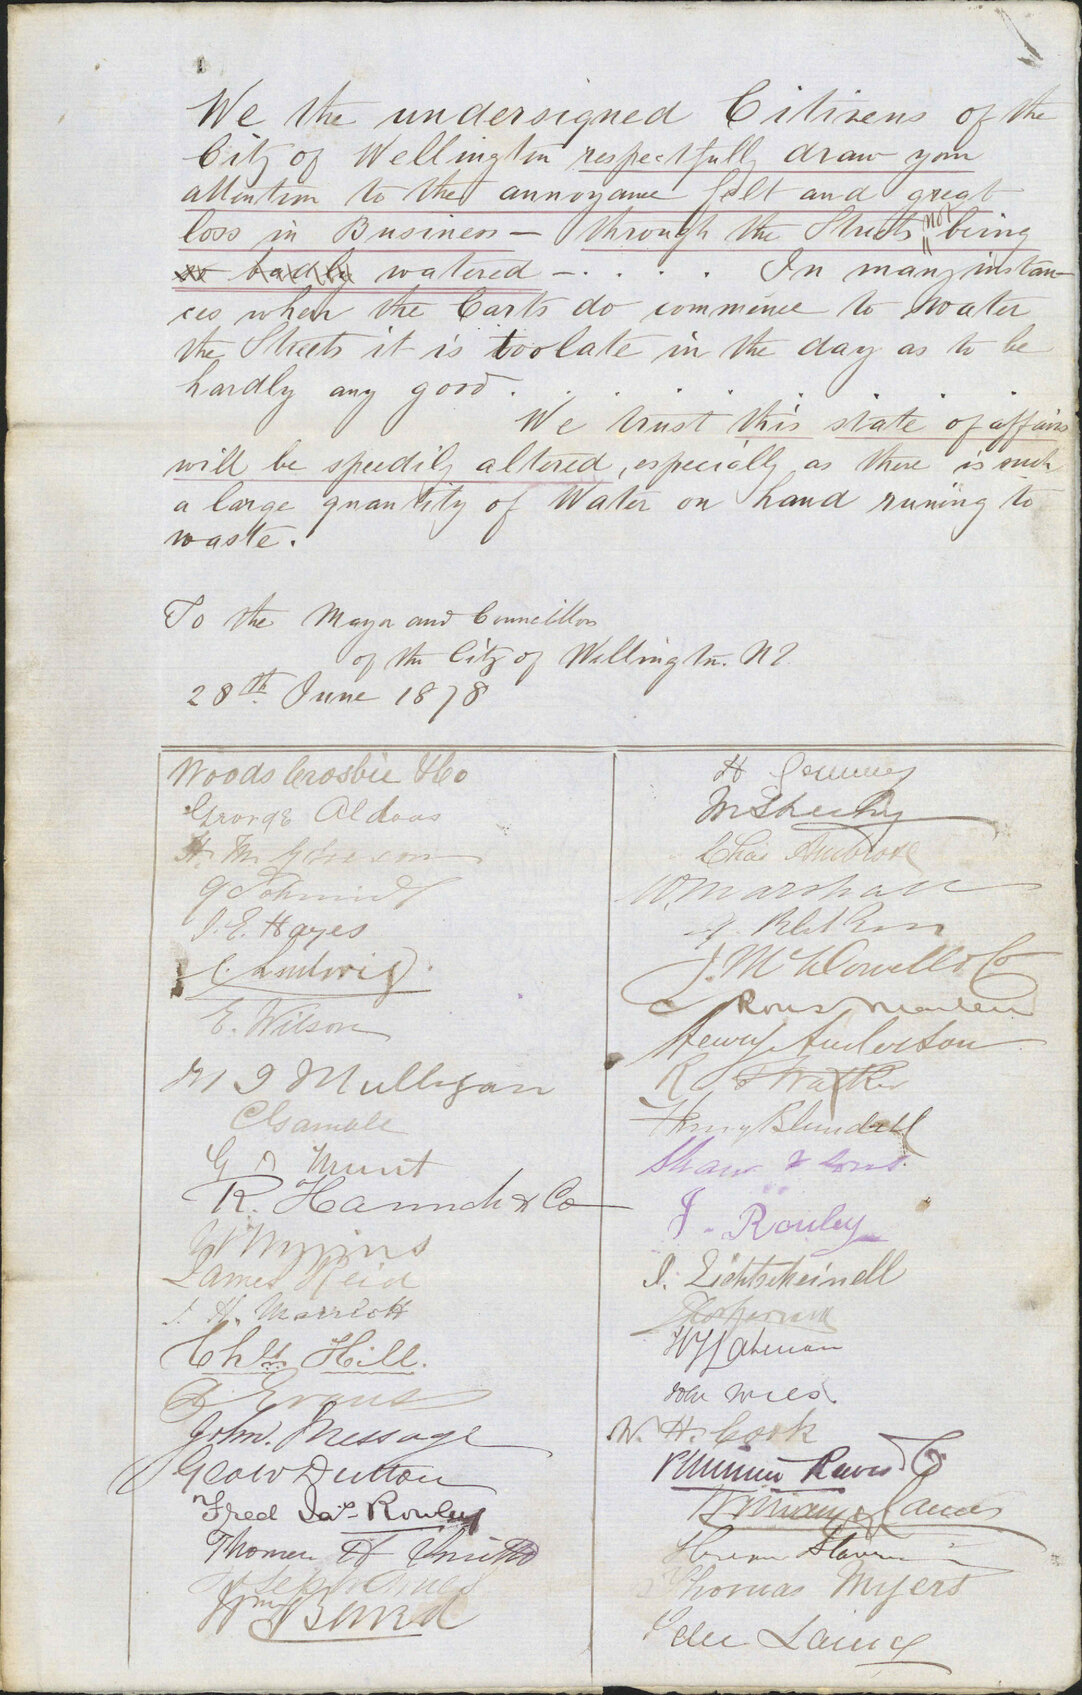 We the undersigned Citizens of the
City of Wellington respectfully draw your
attention to the annoyance felt and great
loss in Business — through the Streets not being
so badly watered — . . . . In many instan-
ces when the Carts do commence to Water
the Streets it is too late in the day as to be
hardly any good . . . . . .
We trust this state of affairs
will be speedily altered, especially as there is such
a large quantity of Water on hand runing to
waste.
To the Mayor and Councillors
of the City of Wellington. NZ
28th June 1878
Woods Crosbie & Co
George Aldous
H. M.
G Schmidt
J. E. Hayes
C. Ludwig.
E. Wilson
Mulligan
C Gamble
G Munt
R. Hannah & Co
James Reid
J. H. Marriott
Chls Hill.
Evans
John. Message
Geo W Dutton
Fred Jas. Rowley
Thomas H Smith
Wm Beard
H
Chas Ambrose
W. Marshall
J. McDowell & Co
Henry Anderson
R Walker
Henry Blundell
Shaw & Sons.
J. Rowley
W. H. Cook
Thomas Myers
Peter Laing